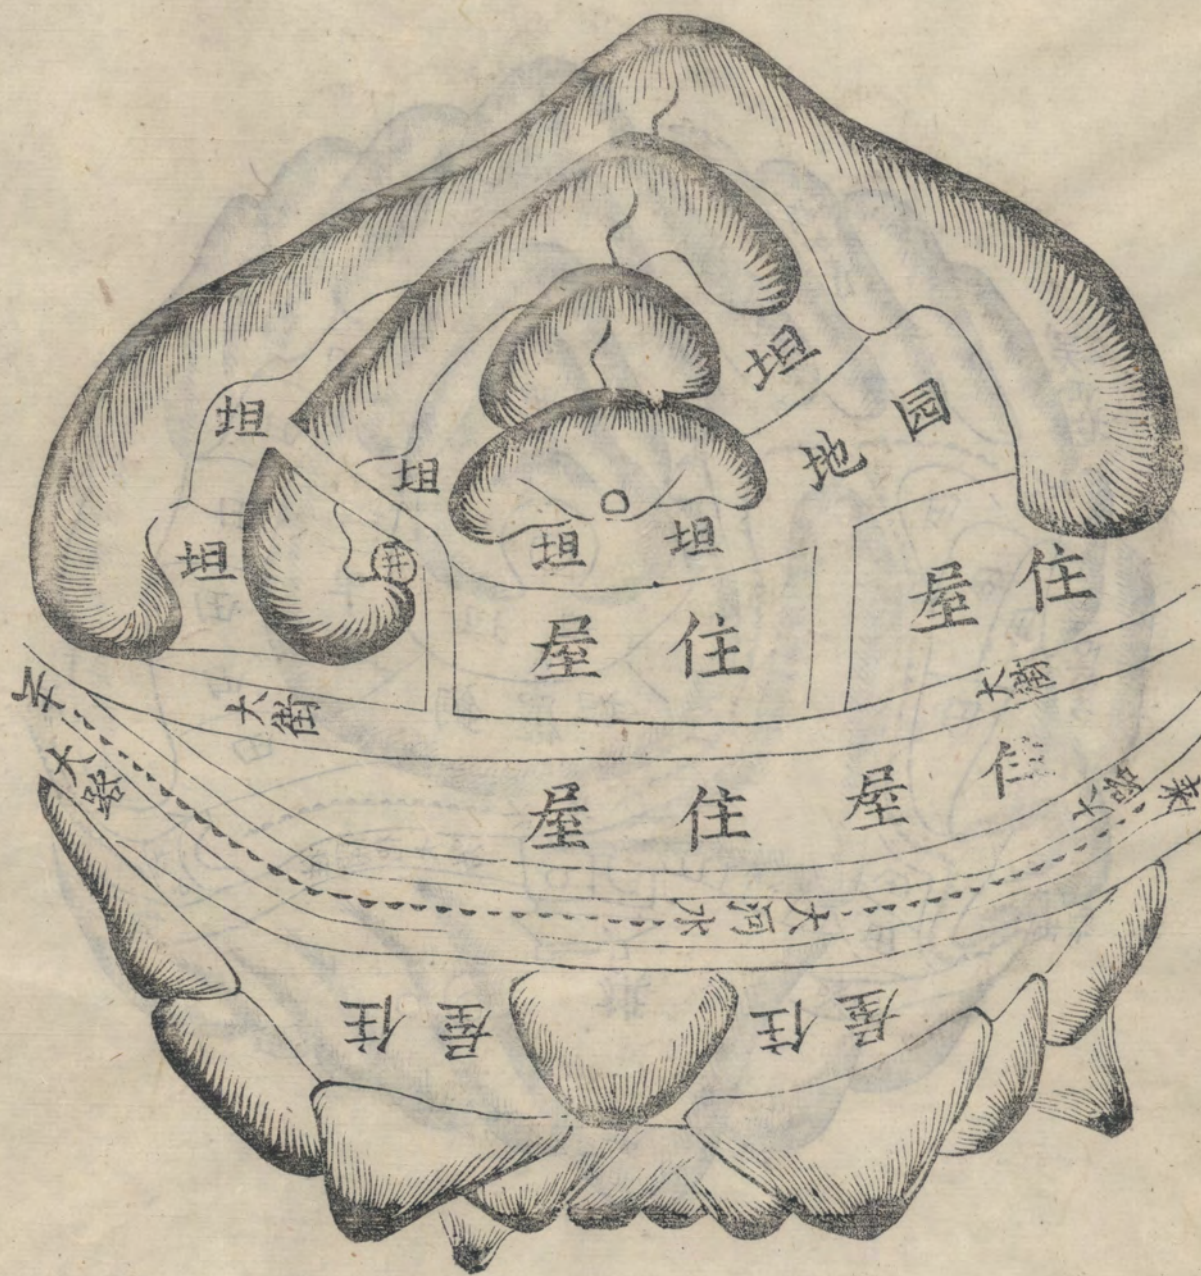 坦
园地
坦
坦
坦
坦
坦
井
住屋
住屋
大街
大街
住屋
住屋
大路
大路
大河水
住屋
住屋